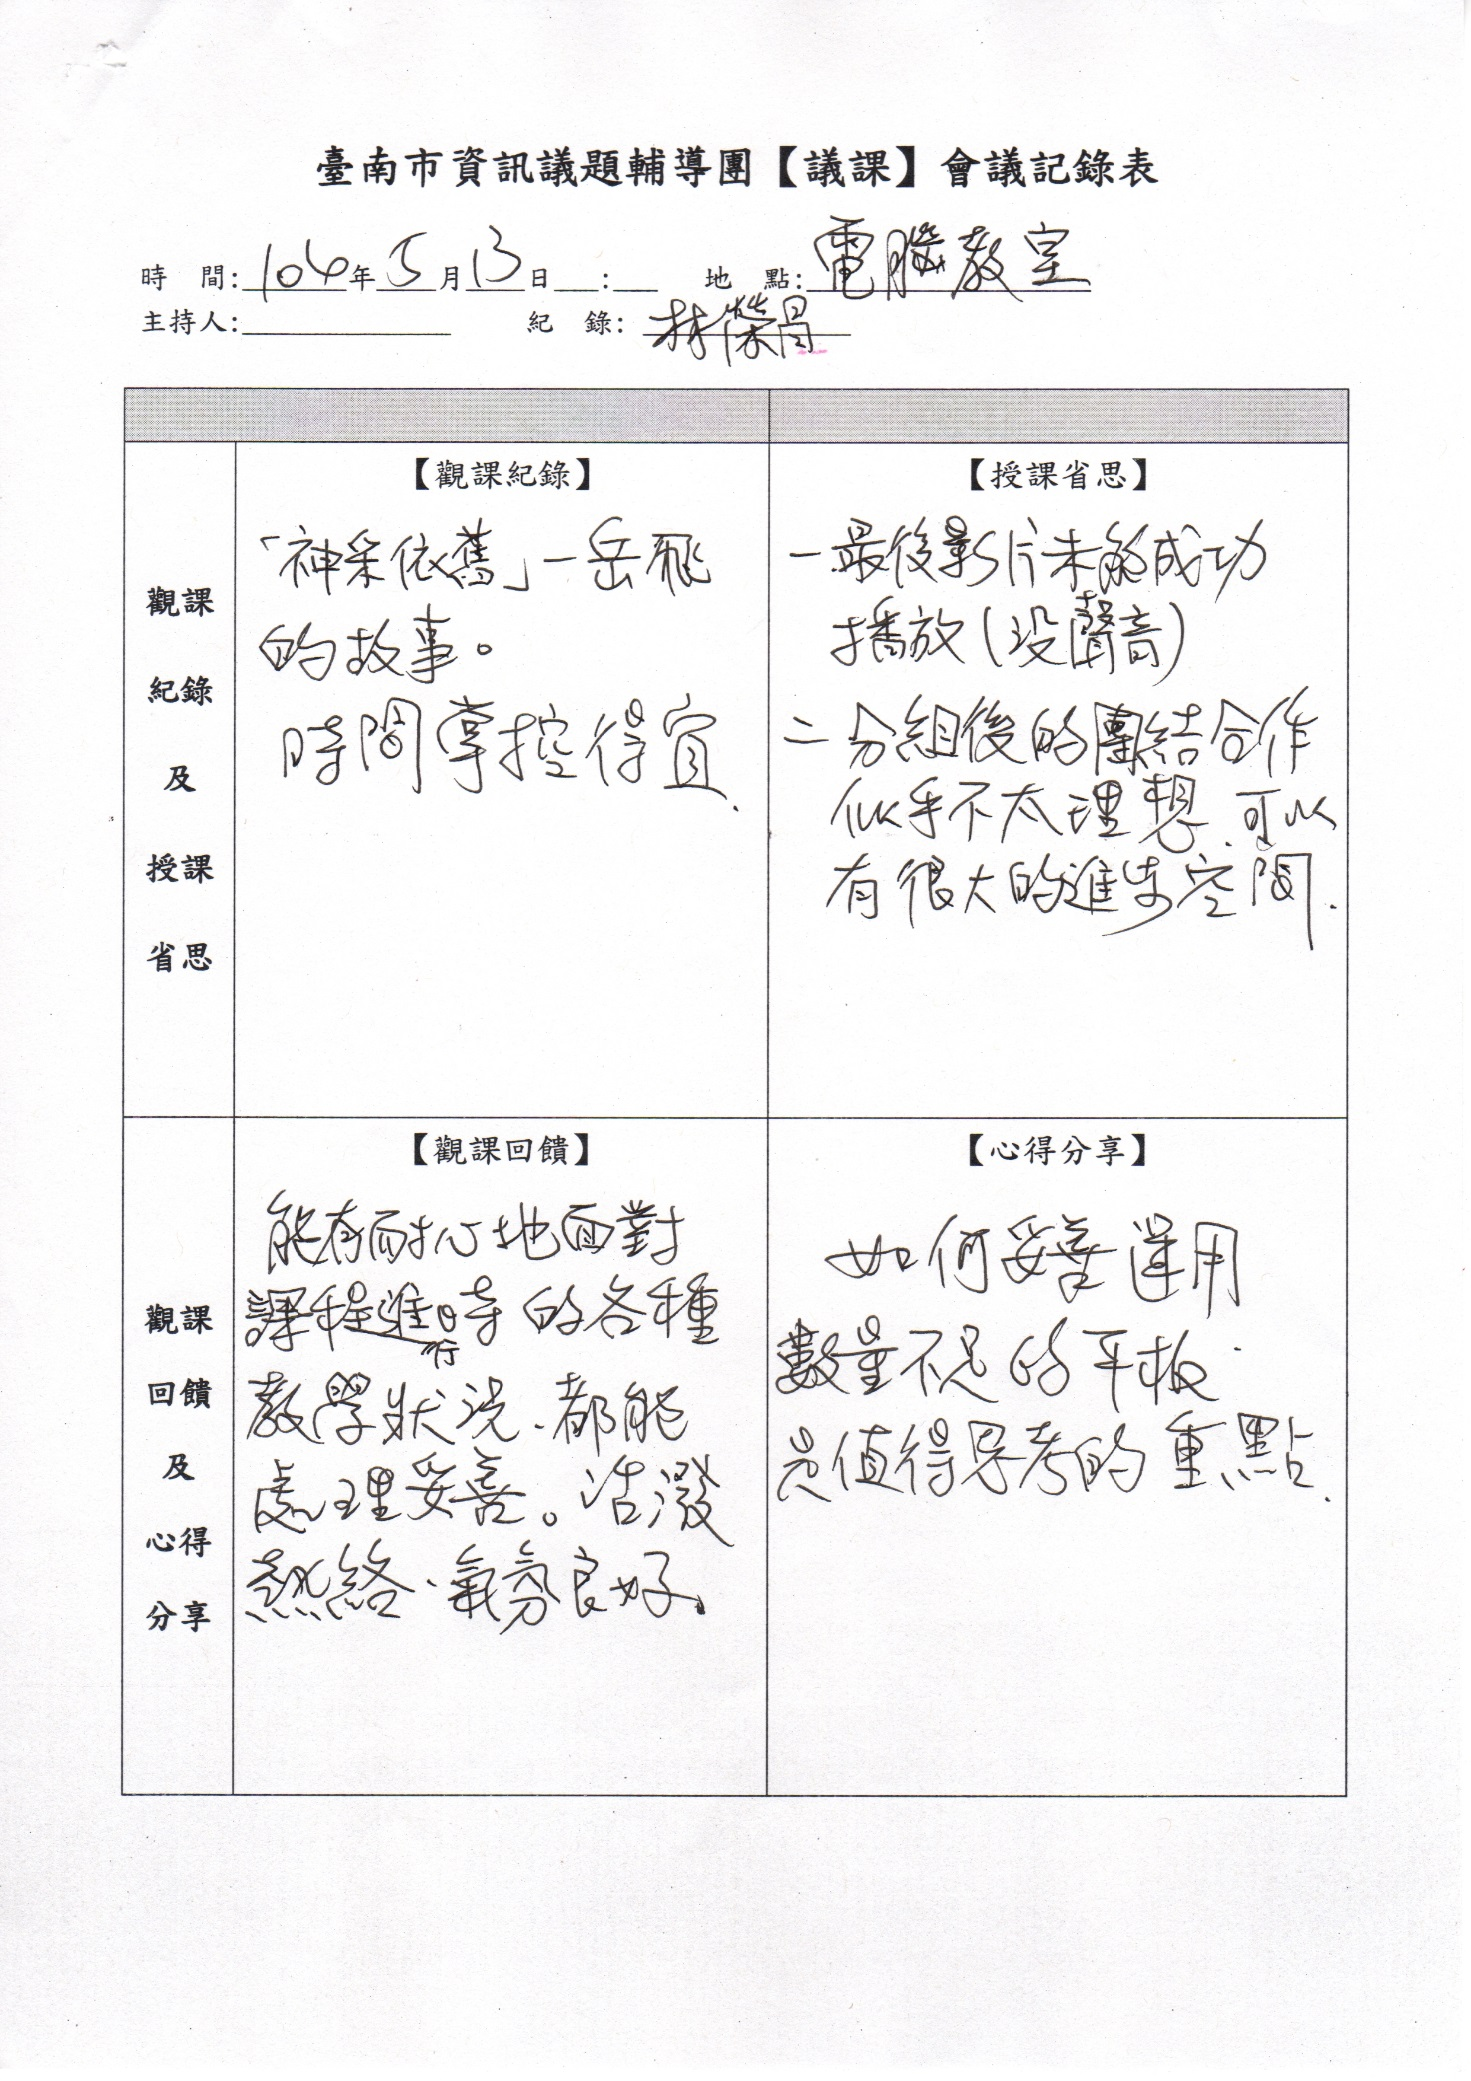 臺南市資訊議題輔導團【議課】會議記錄表
時　間:104年5月13日___:___　地　點:電腦教室
主持人:__________　紀　錄:林榮昌
觀課
紀錄
及
授課
省思
【觀課紀錄】
「神采依舊」－岳飛
的故事。
時間掌控得宜.
【授課省思】
一.最後影片未能成功
播放(沒聲音)
二分組後的團結合作
似乎不太理想、可以
有很大的進步空間.
觀課
回饋
及
心得
分享
【觀課回饋】
能有耐心地面對
課程進行時的各種
教學狀況、都能
處理妥善。活潑
熱絡、氣氛良好、
【心得分享】
如何妥善運用
數量不足的平板、
是值得思考的重點.